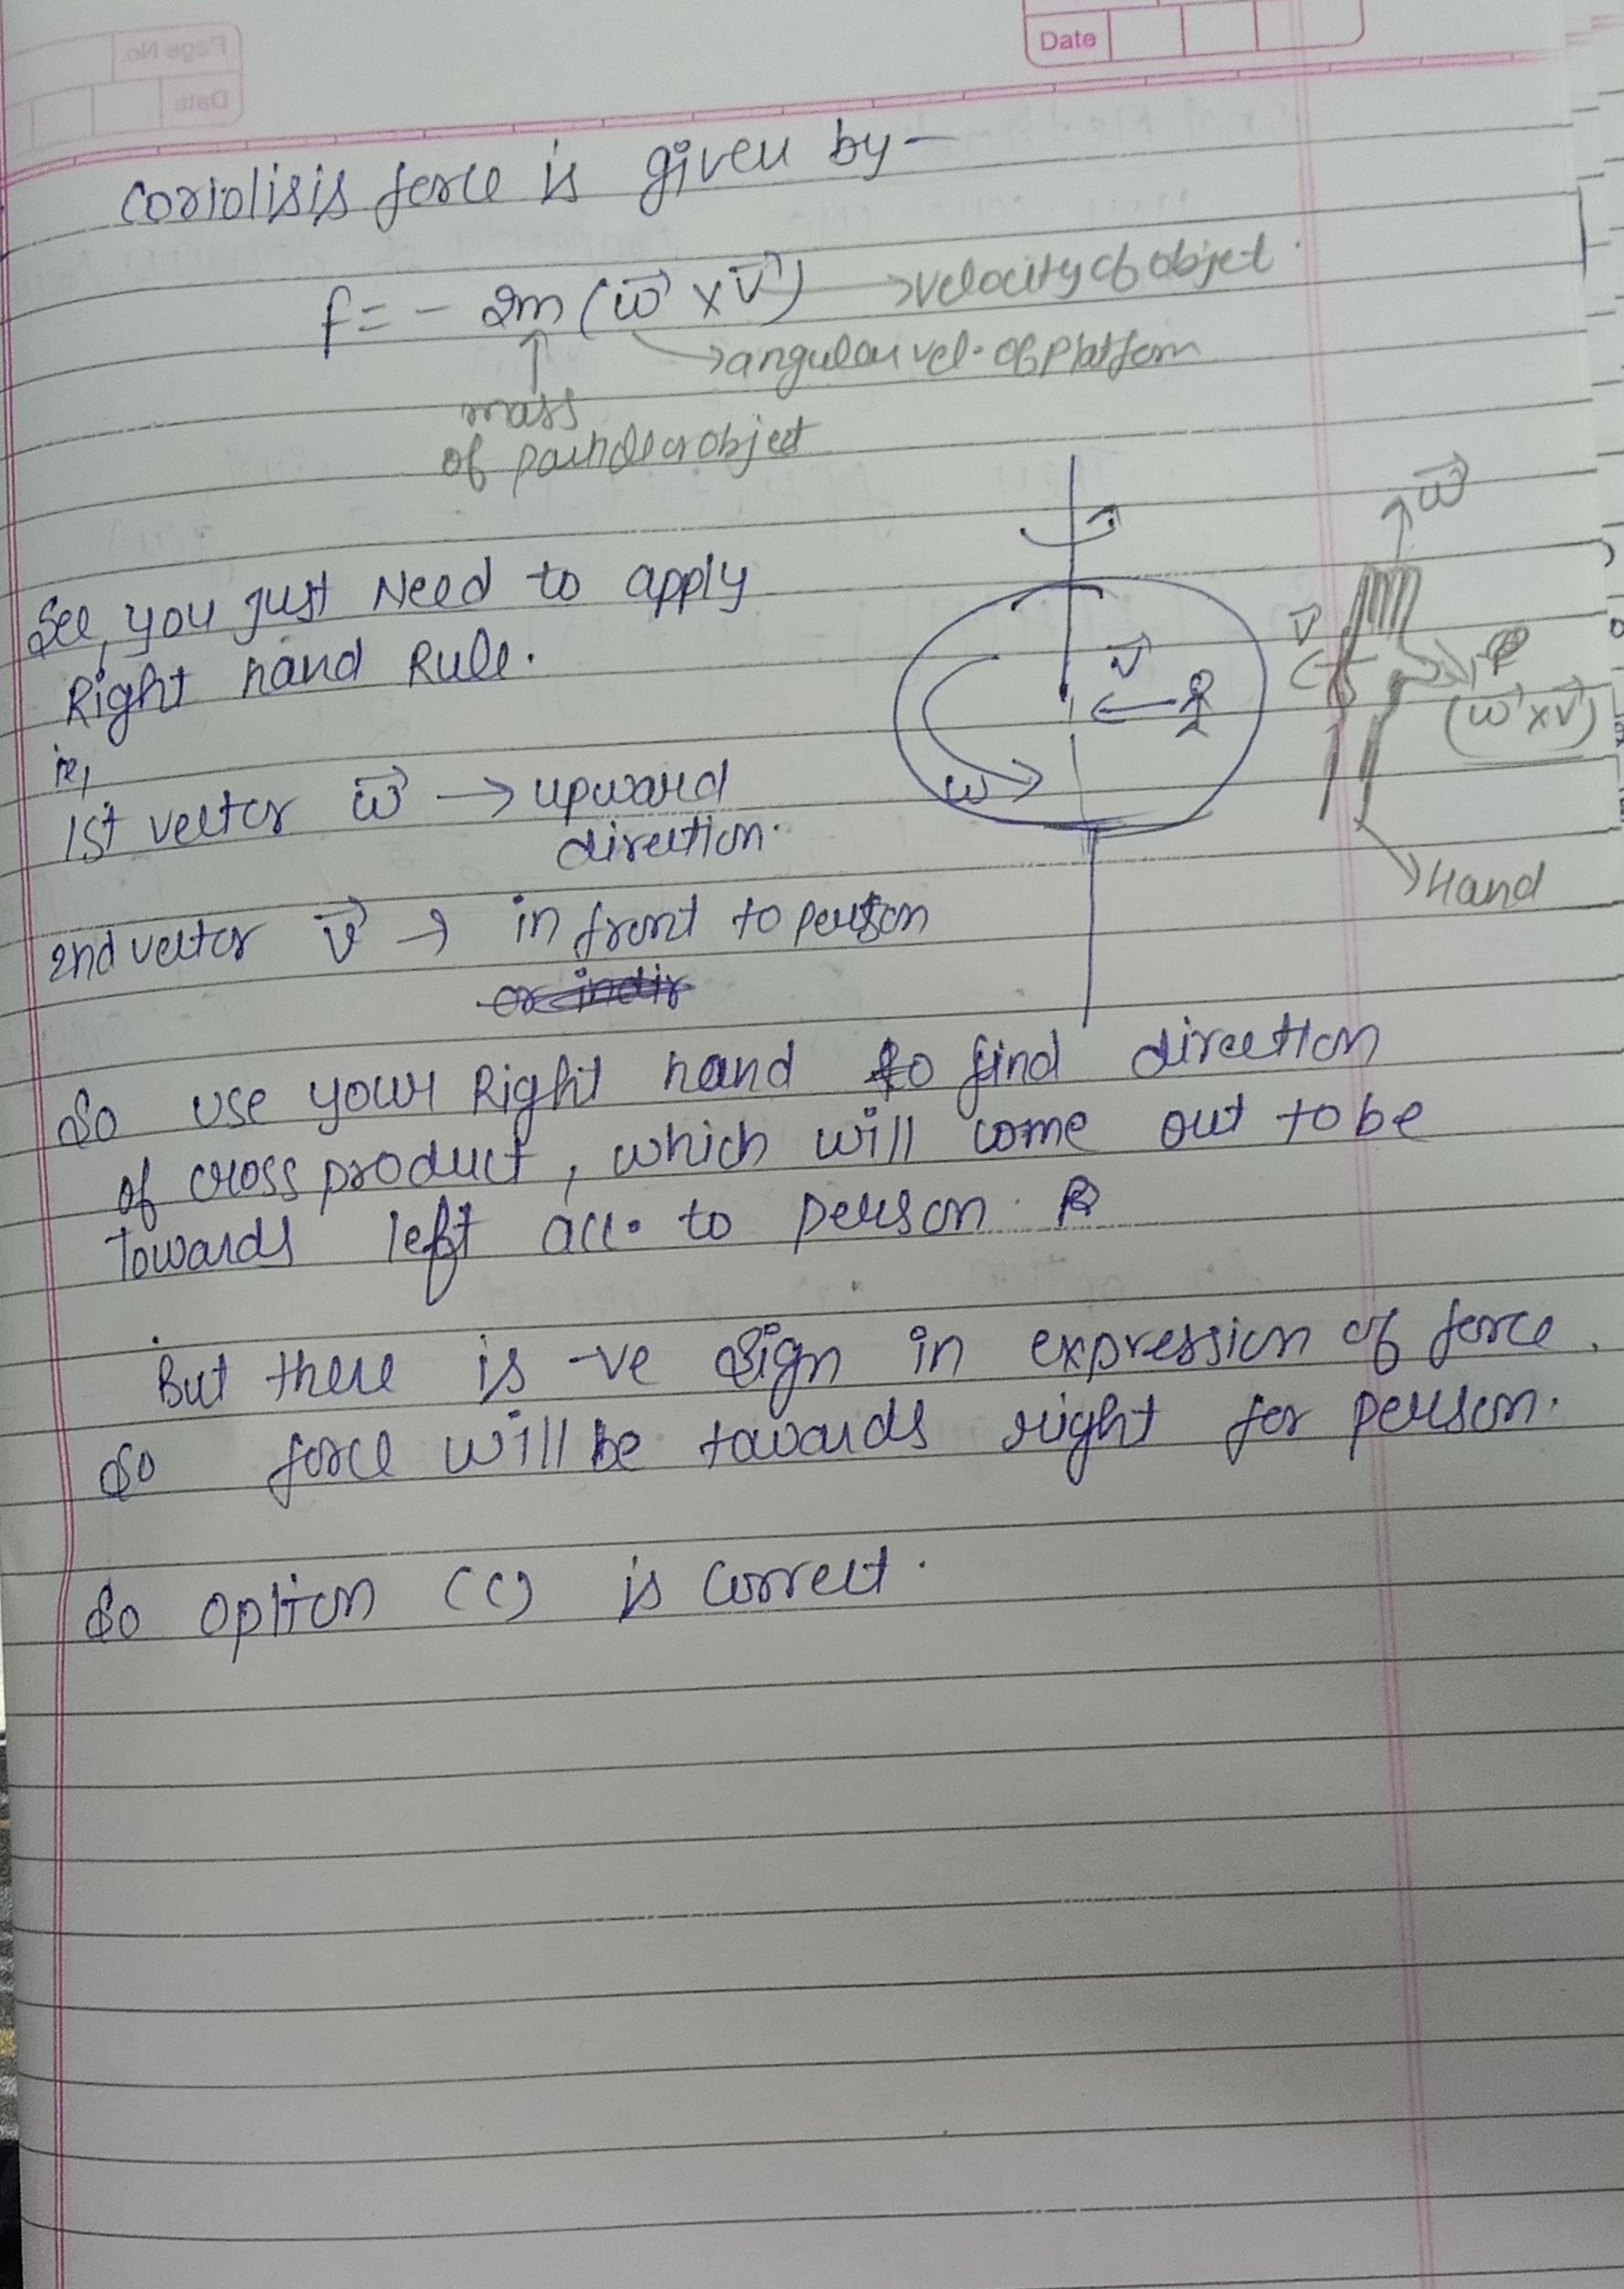 Date
Page No.
Date
Coriolisis force is given by -
f = - 2m (ω⃗ × v⃗) → velocity of objet.
→ angular vel. of Platform
mass
of particle or object
See, you just Need to apply
Right hand Rule.
ie,
1st vector ω⃗ → upward
direction.
2nd vector v⃗ → in front to person
or indir
ω⃗
v⃗
v⃗
(ω⃗ × v⃗)
ω
→ Hand
So use your Right hand to find direction
of cross product, which will come out to be
Towards left acc. to person.
But there is -ve sign in expression of force.
So force will be towards right for person.
So option (C) is correct.